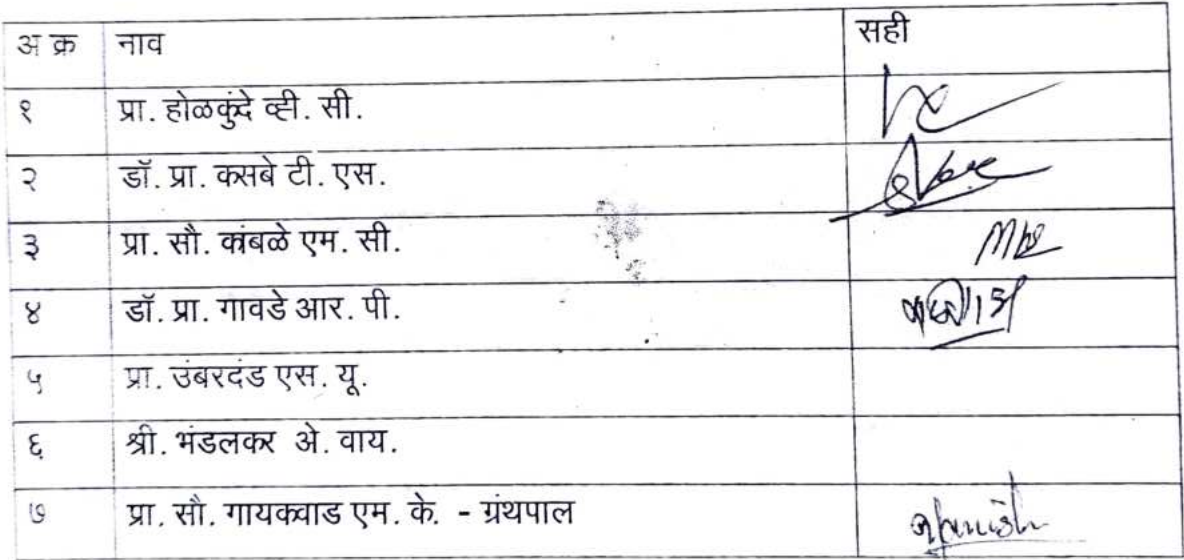 अ क्र नाव सही
१ प्रा. होळकुंदे व्ही. सी.
२ डॉ. प्रा. कसबे टी. एस.
३ प्रा. सौ. कांबळे एम. सी.
४ डॉ. प्रा. गावडे आर. पी.
५ प्रा. उंबरदंड एस. यू.
६ श्री. भंडलकर अे. वाय.
७ प्रा. सौ. गायकवाड एम. के. - ग्रंथपाल